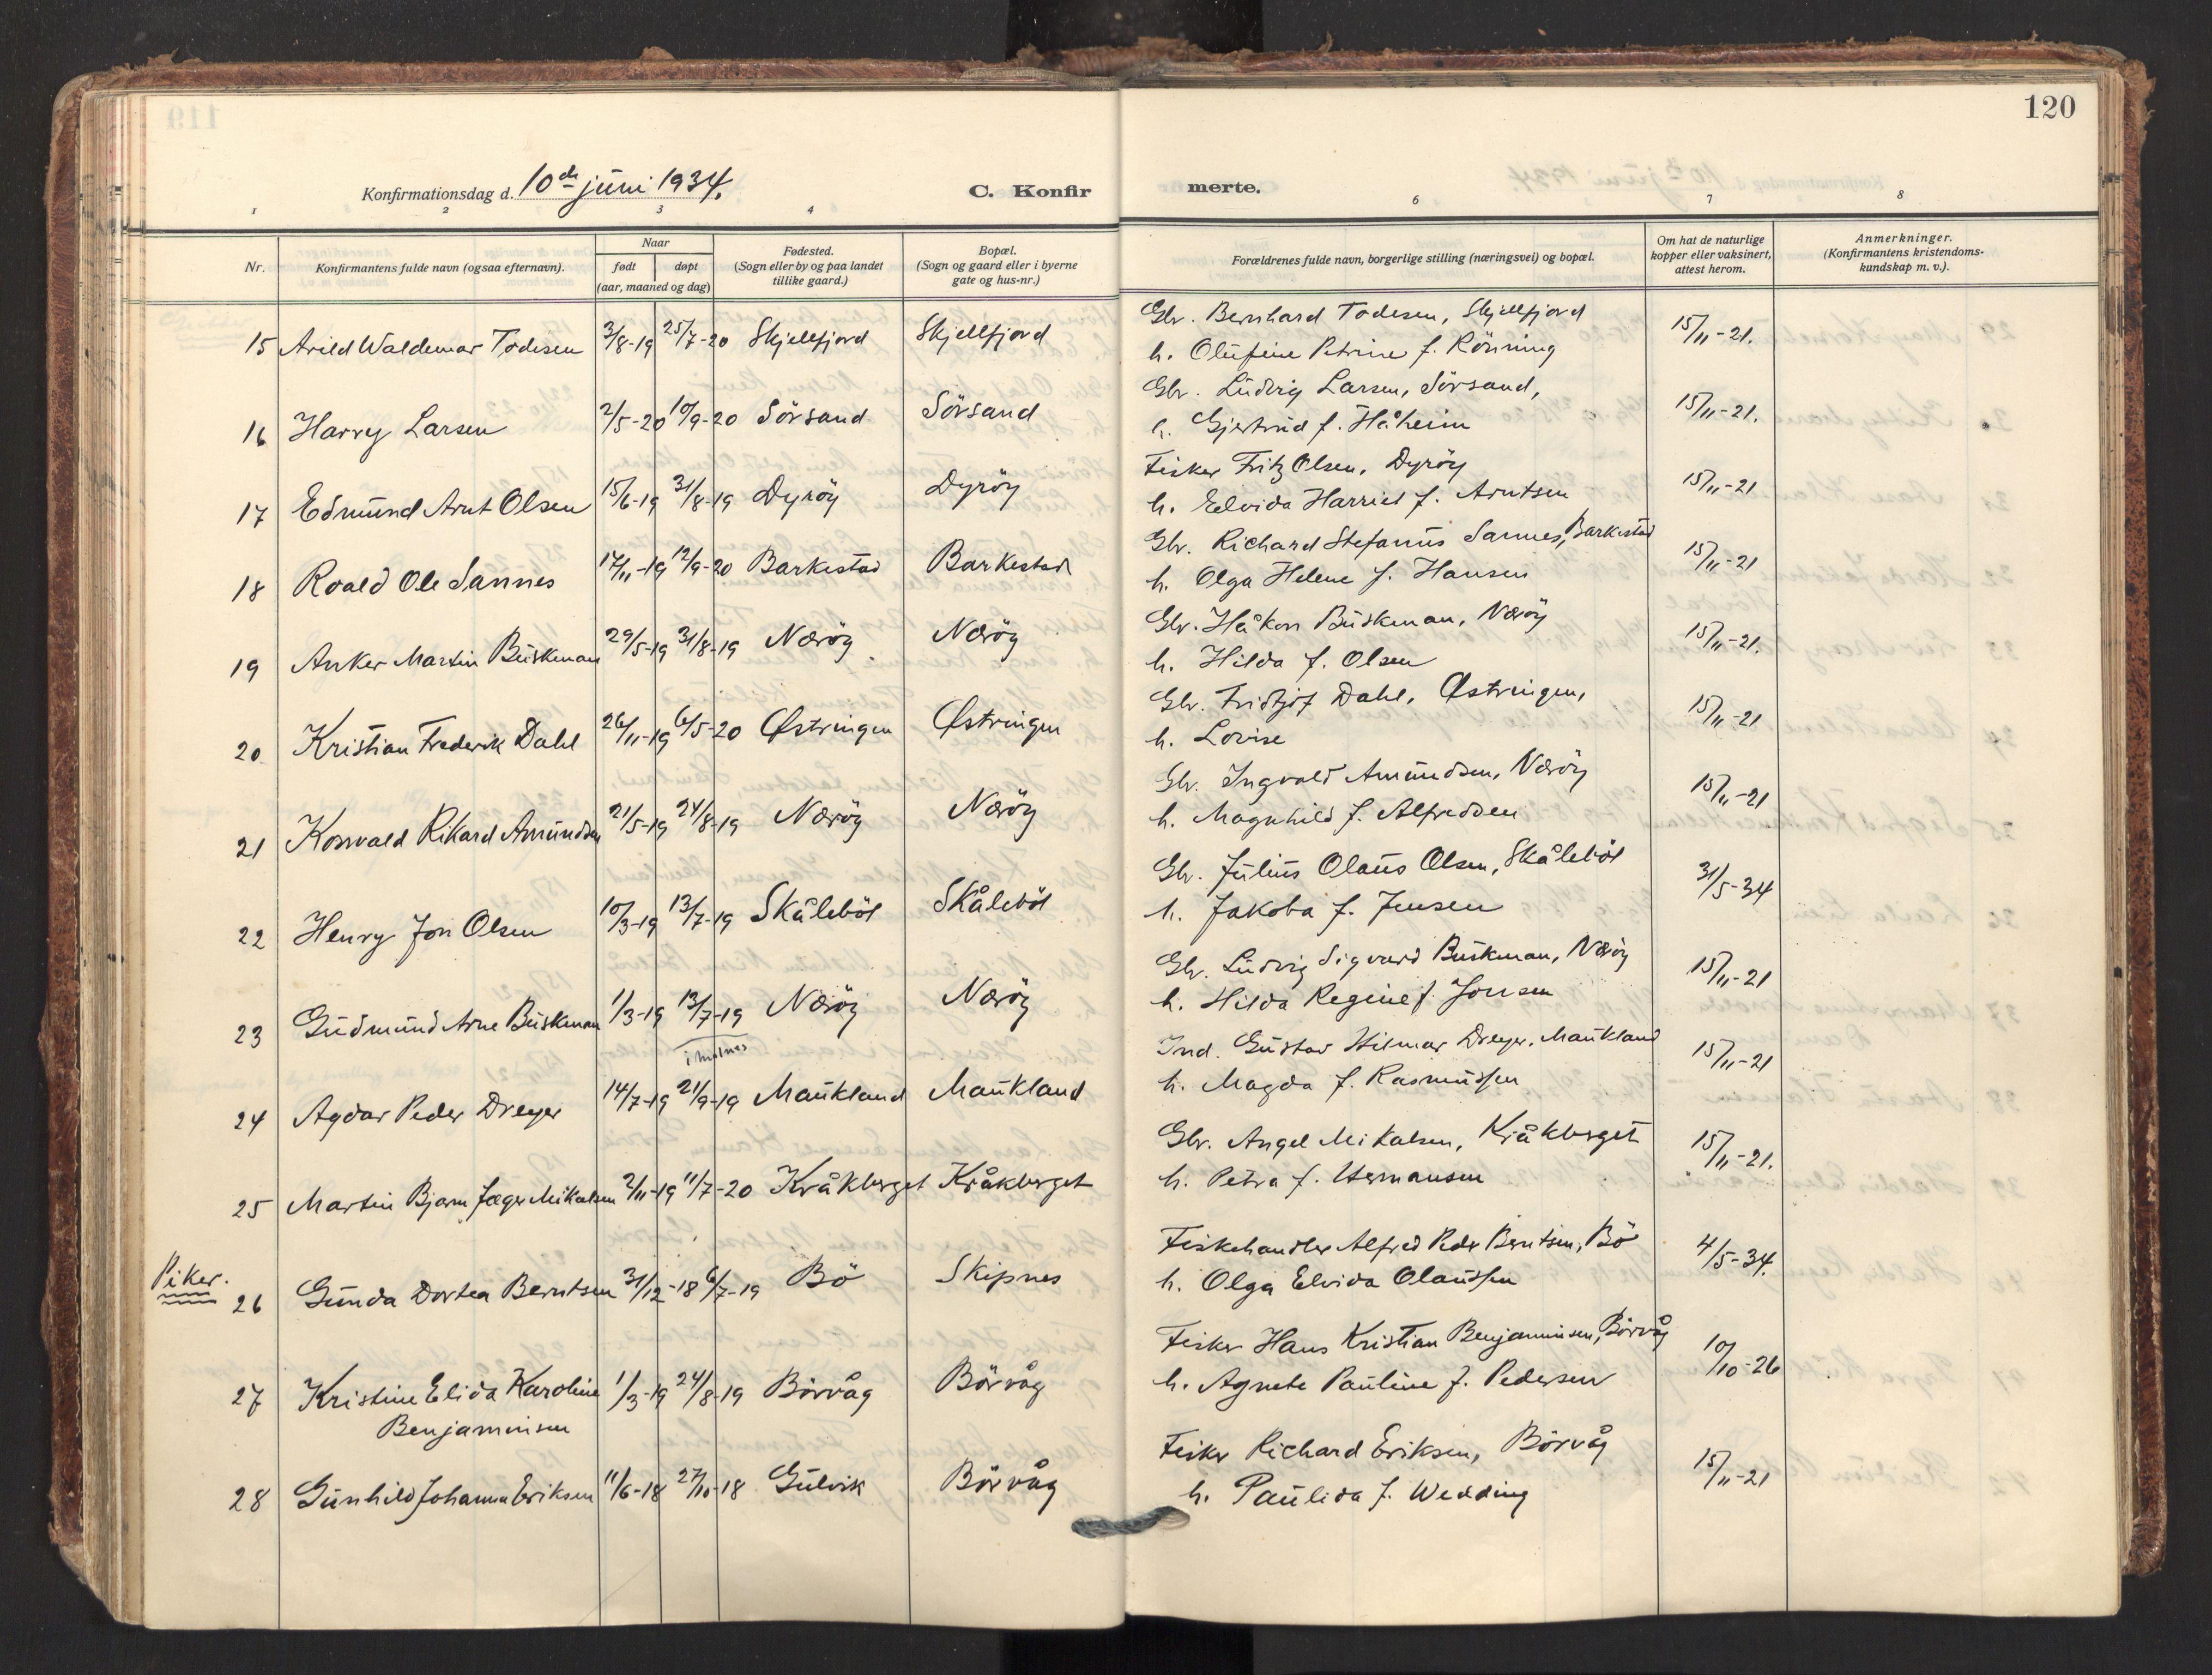 120
Konfirmationsdag d. 10de juni 1934.
C. Konfir
merte.
1 2 3 4 6 7 8
Nr.
Konfirmantens fulde navn (ogsaa efternavn).
Naar
født døpt
(aar, maaned og dag)
Fødested.
(Sogn eller by og paa landet
tillike gaard.)
Bopæl.
(Sogn og gaard eller i byerne
gate og hus-nr.)
Forældrenes fulde navn, borgerlige stilling (næringsvei) og bopæl.
Om hat de naturlige
kopper eller vaksinert,
attest herom.
Anmerkninger.
(Konfirmantens kristendoms-
kundskap m. v.).
15 Arild Waldemar Todisen 3/8-19 25/7-20 Skjellfjord Skjellfjord
Gbr. Bernhard Todesen, Skjellfjord
h. Olufine Petrine f. Rönning
15/11-21.
16 Harry Larsen 2/5-20 10/9-20 Sörsand Sörsand
Gbr. Ludvig Larsen, Sörsand,
h. Gjertrud f. Håheim
15/11-21.
17 Edmund Arnt Olsen 15/6-19 31/8-19 Dyröy Dyröy
Fisker Fritz Olsen, Dyröy
h. Elvida Harriet f. Arntsen
15/11-21
18 Roald Ole Sannes 17/11-19 12/9-20 Barkestad Barkestad
Gbr. Richard Stefanus Sannes, Barkestad
h. Olga Helene f. Hansen
15/11-21
19 Anker Martin Buskman 29/5-19 31/8-19 Næröy Næröy
Gbr. Håkon Buskman, Næröy
h. Hilda f. Olsen
15/11-21.
20 Kristian Frederik Dahl 26/11-19 6/5-20 Østringen Østringen
Gbr. Fridtjof Dahl, Østringen,
h. Lovise
15/11-21
21 Konvald Rikard Amundsen 21/5-19 24/8-19 Næröy Næröy
Gbr. Ingvald Amundsen, Næröy
h. Magnhild f. Alfredsen
15/11-21
22 Henry Jon Olsen 10/3-19 13/7-19 Skåleböl Skåleböl
Gbr. Julius Olaus Olsen, Skåleböl
h. Jakoba f. Jensen
31/5-34
23 Gudmund Arne Buskman 1/3-19 13/7-19 Næröy Næröy
Gbr. Ludvig Sigvard Buskman, Næröy
h. Hilda Regine f. Jonsen
15/11-21
i malnes
24 Agdar Peder Dreyer 14/7-19 21/9-19 Maukland Maukland
Ind. Gustav Hilmar Dreyer, Maukland
h. Magda f. Rasmussen
15/11-21
25 Martin Bjarn Jæger Mikalsen 2/11-19 11/7-20 Kråkberget Kråkberget
Gbr. Angel Mikalsen, Kråkberget
h. Petra f. Hermansen
15/11-21.
Piker.
26 Gunda Dortea Berntsen 31/12-18 6/7-19 Bö Skipnes
Fiskehandler Alfred Peder Berntsen, Bö
h. Olga Elvida Olaussen
4/5-34.
27 Kristine Elida Karoline 1/3-19 24/8-19 Börvåg Börvåg
Benjaminsen
Fisker Hans Kristian Benjaminsen, Börvåg
h. Agnete Pauline f. Pedersen
10/10-26
28 Gunhild Johanna Eriksen 11/6-18 27/10-18 Gulvik Börvåg
Fisker Richard Eriksen, Börvåg
h. Paulida f. Wedding
15/11-21